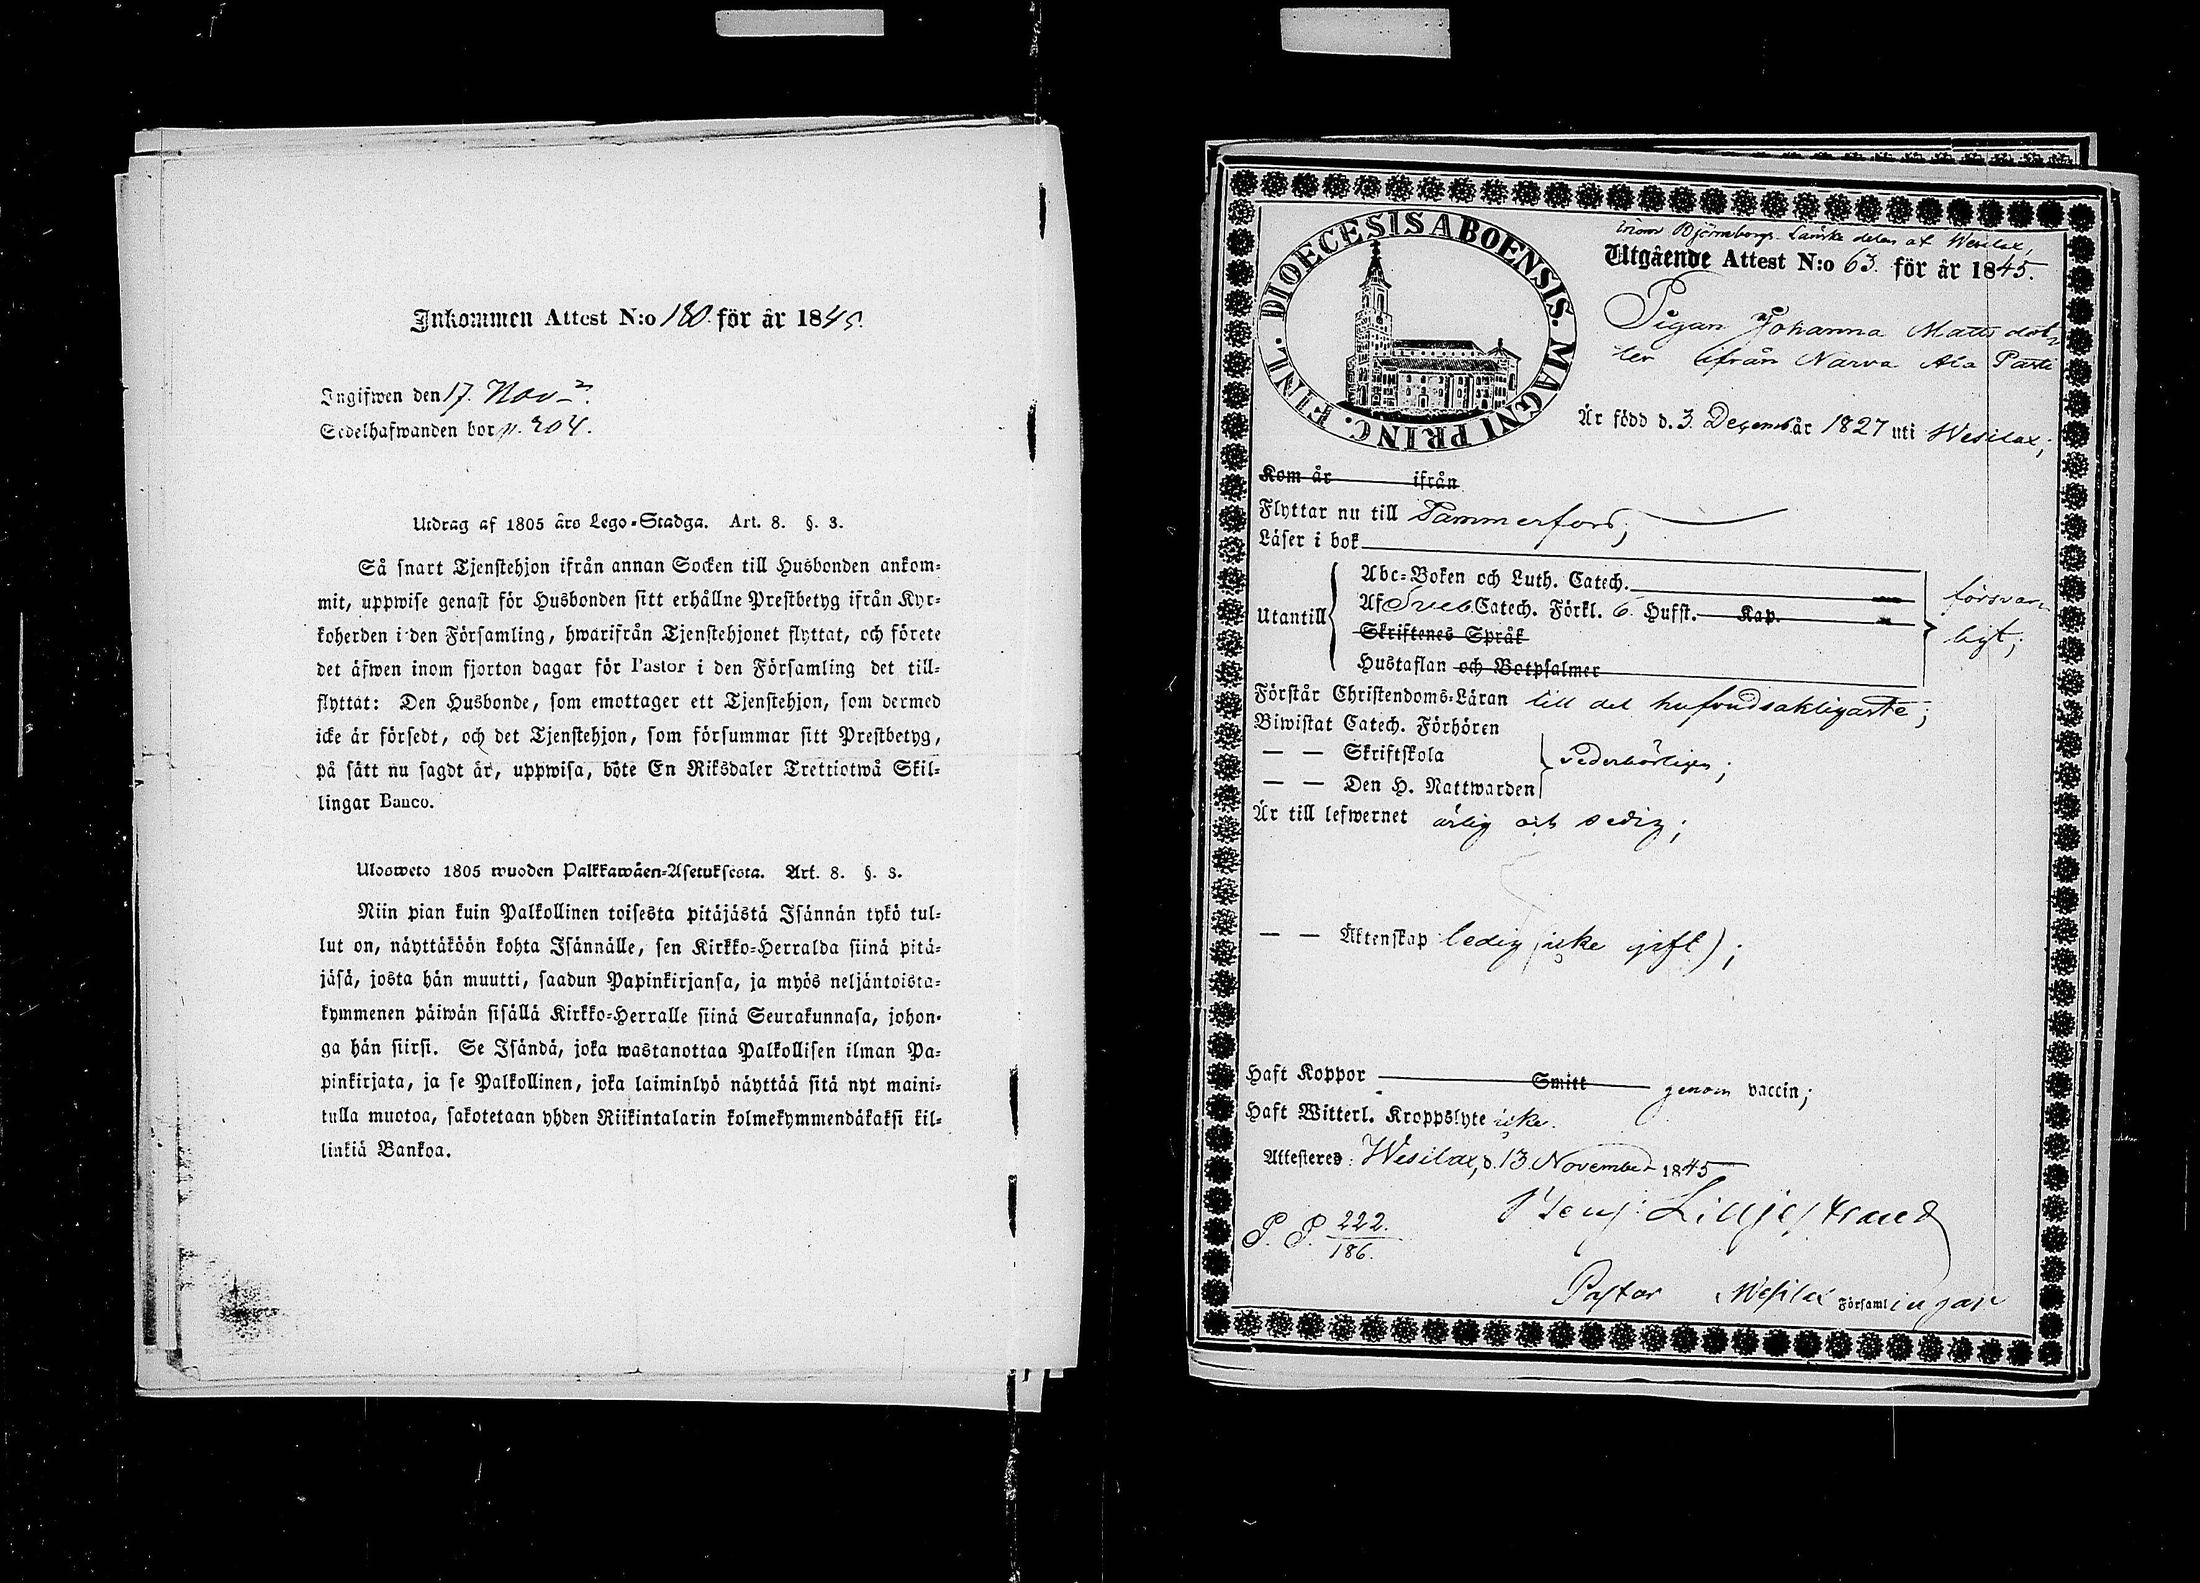 Inkommen Attest N:o 180. för år 1845.
Ingifwen den 17. Nov.
Sedelhafwanden bor p. 204.
Utdrag af 1805 års Lego-Stadga. Art. 8. §. 3.
Så snart Tjenstehjon ifrån annan Socken till Husbonden ankom-
mit, uppwise genast för Husbonden sitt erhållne Prestbetyg ifrån Kyr-
koherden i den Församling, hwarifrån Tjenstehjonet flyttat, och förete
det äfwen inom fjorton dagar för Pastor i den Församling det till-
flyttat: Den Husbonde, som emottager ett Tjenstehjon, som dermed
icke är försedt, och det Tjenstehjon, som försummar sitt Prestbetyg,
på sätt nu sagdt är, uppwisa, böte En Riksdaler Trettiotwå Skil-
lingar Banco.
Ulosweto 1805 wuoden Palkkawäen-Asetuksesta. Art. 8. §. 3.
Niin pian kuin Palkollinen toisesta pitäjästä Isännän tykö tul-
lut on, näyttäköön kohta Isännälle, sen Kirkko-Herralda siinä pitä-
jäsä, josta hän muutti, saadun Papinkirjansa, ja myös neljäntoista-
kymmenen päiwän sisällä Kirkko-Herralle siinä Seurakunnasa, johon-
ga hän siirsi. Se Isändä, joka wastanottaa Palkollisen ilman Pa-
pinkirjata, ja se Palkollinen, joka laiminlyö näyttää sitä nyt maini-
tulla muotoa, sakotetaan yhden Riikintalarin kolmekymmendäkaksi kil-
linkiä Bankoa.
DIOECESIS ABOENSIS. MAGNI PRINC. FINL.
inom Björneborgs Länske delen af Wesilax,
Utgående Attest N:o 63. för år 1845.
Pigan Johanna Matts dot-
ter ifrån Narva Ala Pasti
Är född d. 3. Decemb år 1827 uti Wesilax;
Kom år ifrån
Flyttar nu till Tammerfors;
Läser i bok
Utantill
Abc-Boken och Luth. Catech.
Af Sveb. Catech. Förkl. 6. Hufst. Kap.
Skriftenes Språk
Hustaflan och Botpsalmer
försvar-
ligt;
Förstår Christendoms-Läran till det hufvudsakligaste;
Biwistat Catech. Förhören
— — Skriftskola
— — Den H. Nattwarden
vederbörligen;
Är till lefwernet ärlig och sedig;
— — Äktenskap ledig (icke gift);
Haft Koppor Smitt genom vaccin;
Haft Witterl. Kroppslyte icke.
Attesteres: Wesilax, d. 13 November 1845
Benj. Lilljestrand
P. P. 222.
186.
Pastor i Wesilax Församlingar